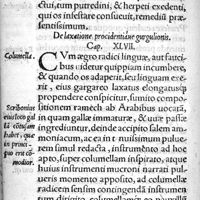 ctui, tum putredini, & herpeti exedenti,
qui os infestare consueuit, remediū præ-
sentissimum.
De laxatione procidentiaue gurgulionis.
Cap. XLVII.
Columella.
CVm ægro radici linguæ, aut fauci-
bus videtur quippiam incumbere,
& quando os adaperit, seu linguam exe-
rit, eius gargareo laxatus elongatusq́;
propendere conspicitur, sumito compo-
sitionem ramech ab Arabibus uocatā,
in quam gallæ immaturæ, & uuæ passæ
ingrediuntur, deinde accipito salem am-
moniacum, ea at teri nuissimum
redacta, instrumēto ad hoc
apto, super columellam inspirato, atque
huius instrumenti mucroni narrati pul-
ueris momento apposito, ad columellæ
radicem sensim contingendā instrumē
Scribonius
eius loco gal
lā cōtusam
habet, quæ
in prōpt
quo erit cō
modior.